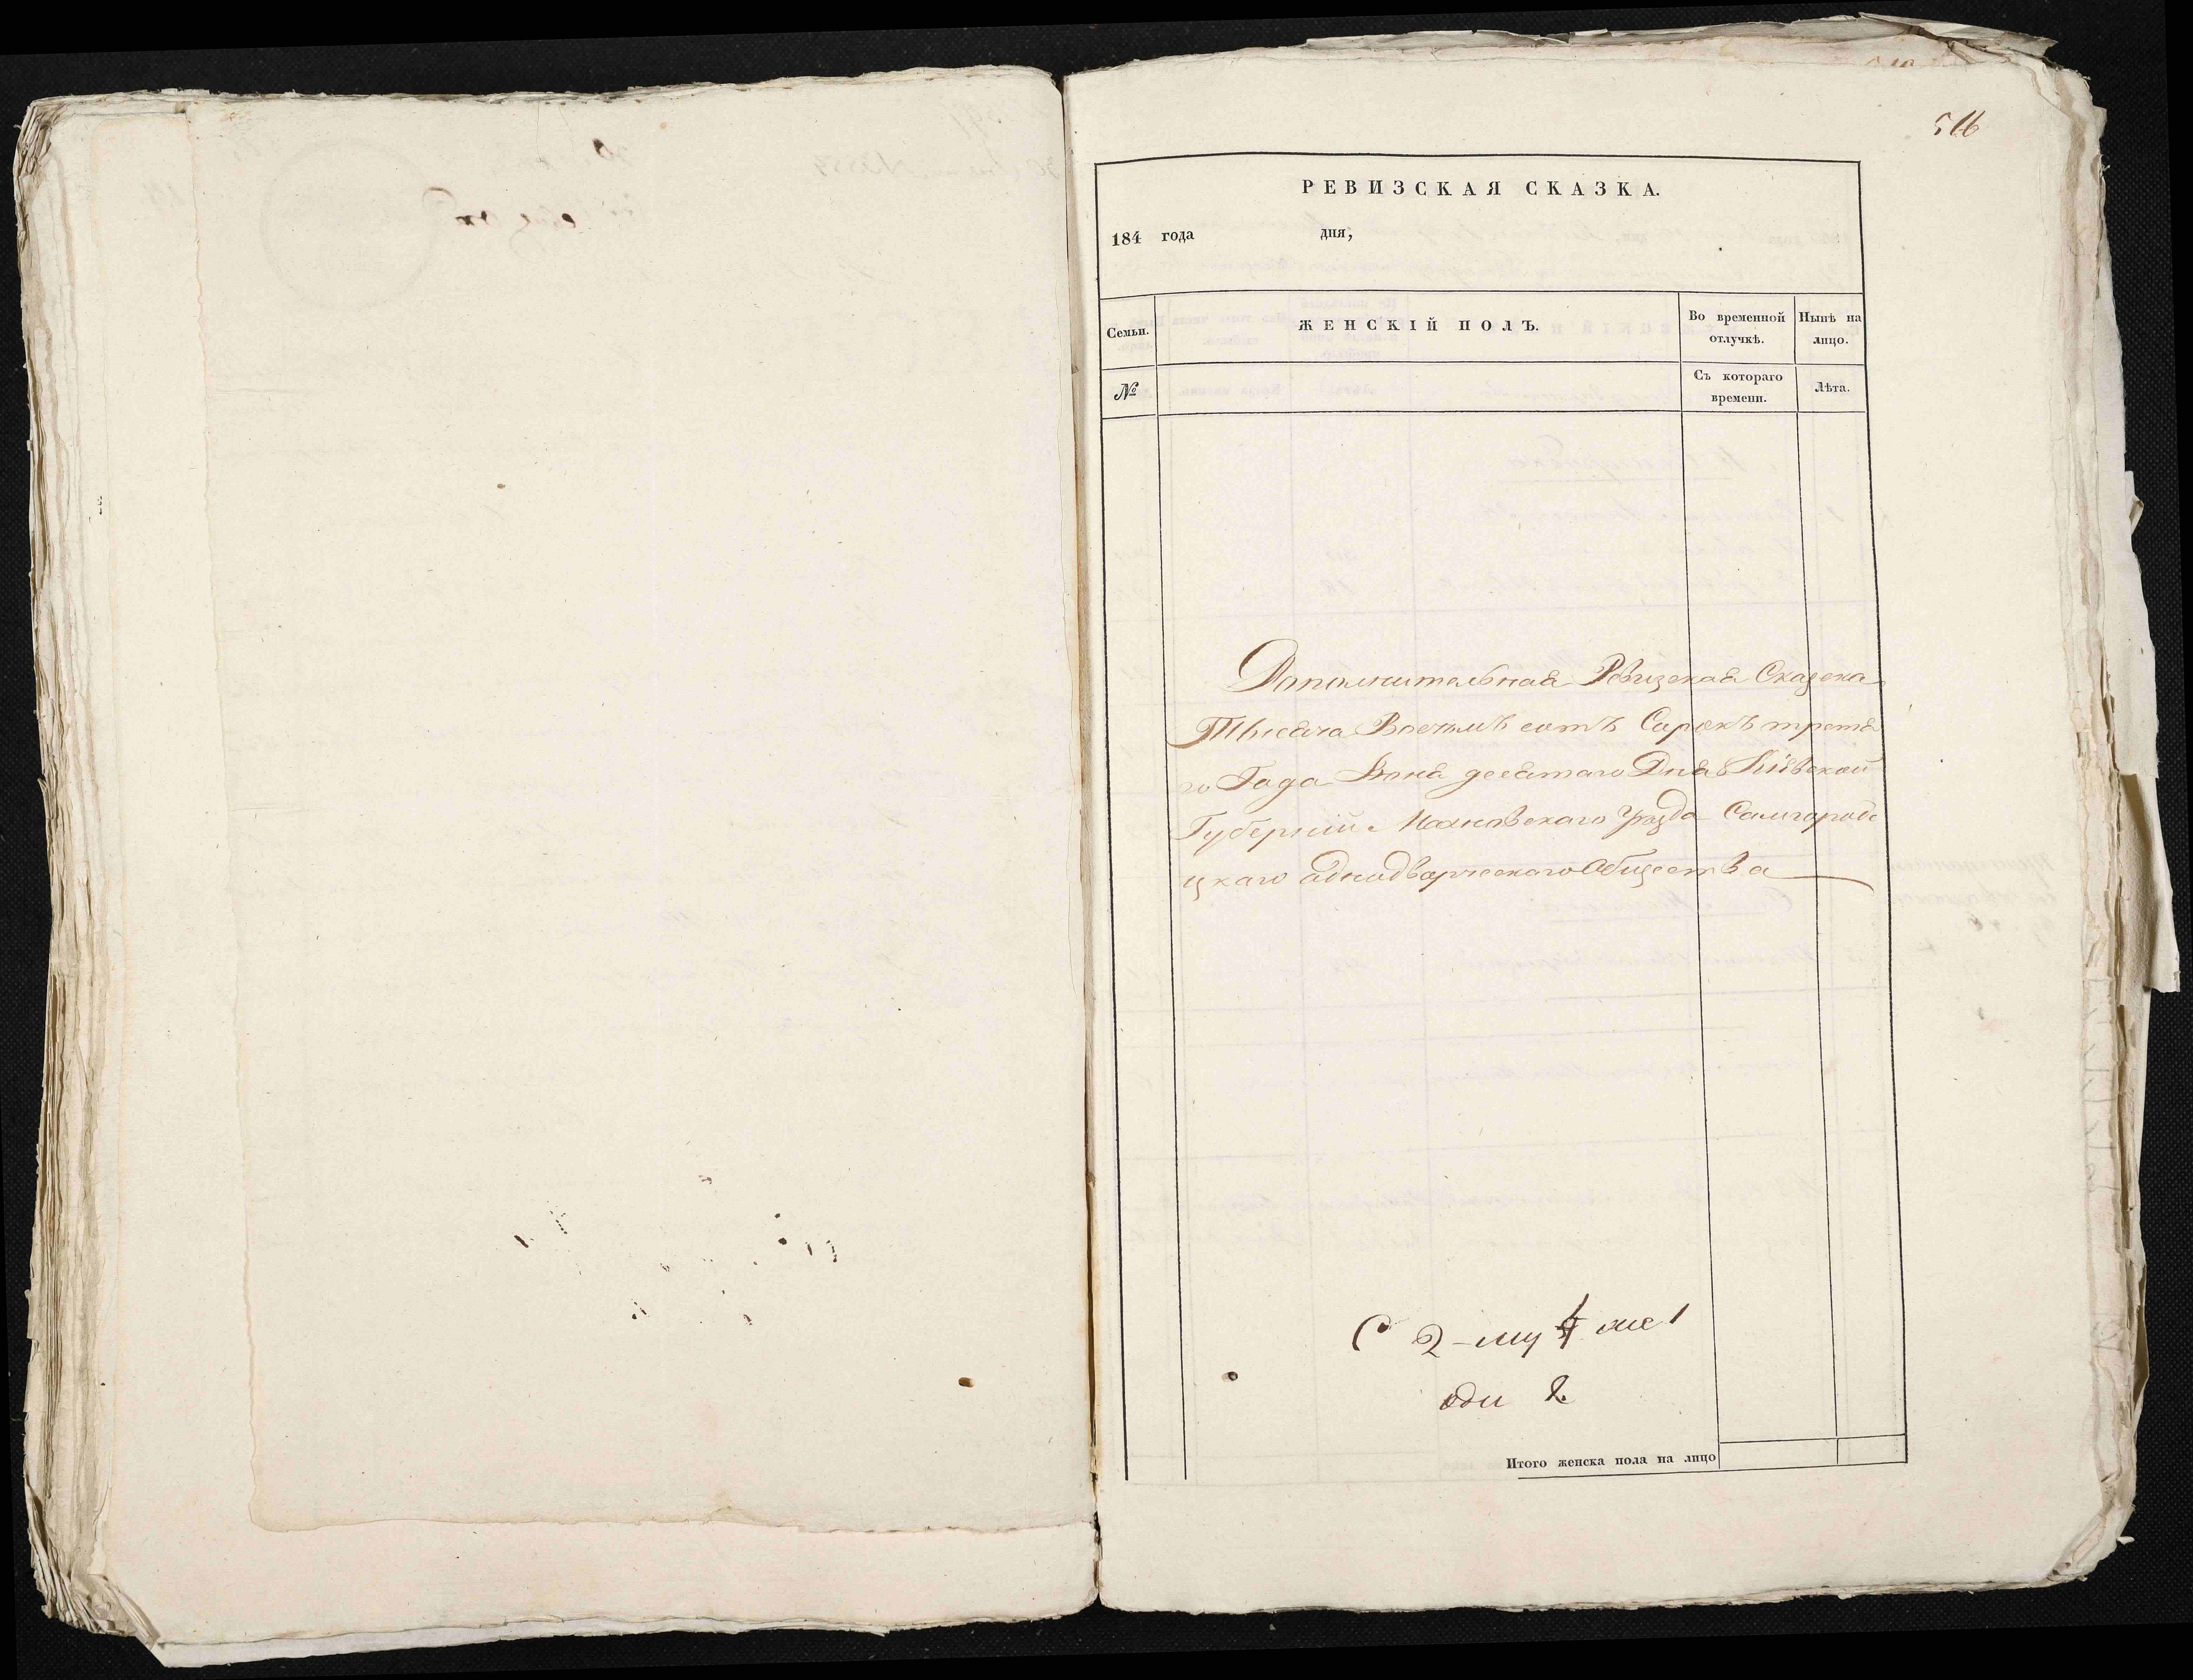 516
РЕВИЗСКАЯ СКАЗКА.
184 года дня,
Семьи.
ЖЕНСКІЙ ПОЛЪ.
Во временной отлучкѣ.
Нынѣ на лицо.
№
Съ котораго времени.
Лѣта.
Дополнительная Ревизская Сказска
Тысяча Восемъ сотъ Сорокъ третя
го Года Юня десятаго Дня Кіевской
Губерніи Махновскаго Уѣзда Самгород
цкаго однодворческаго Общества
2-му
одн 2
Итого женска пола на лицо